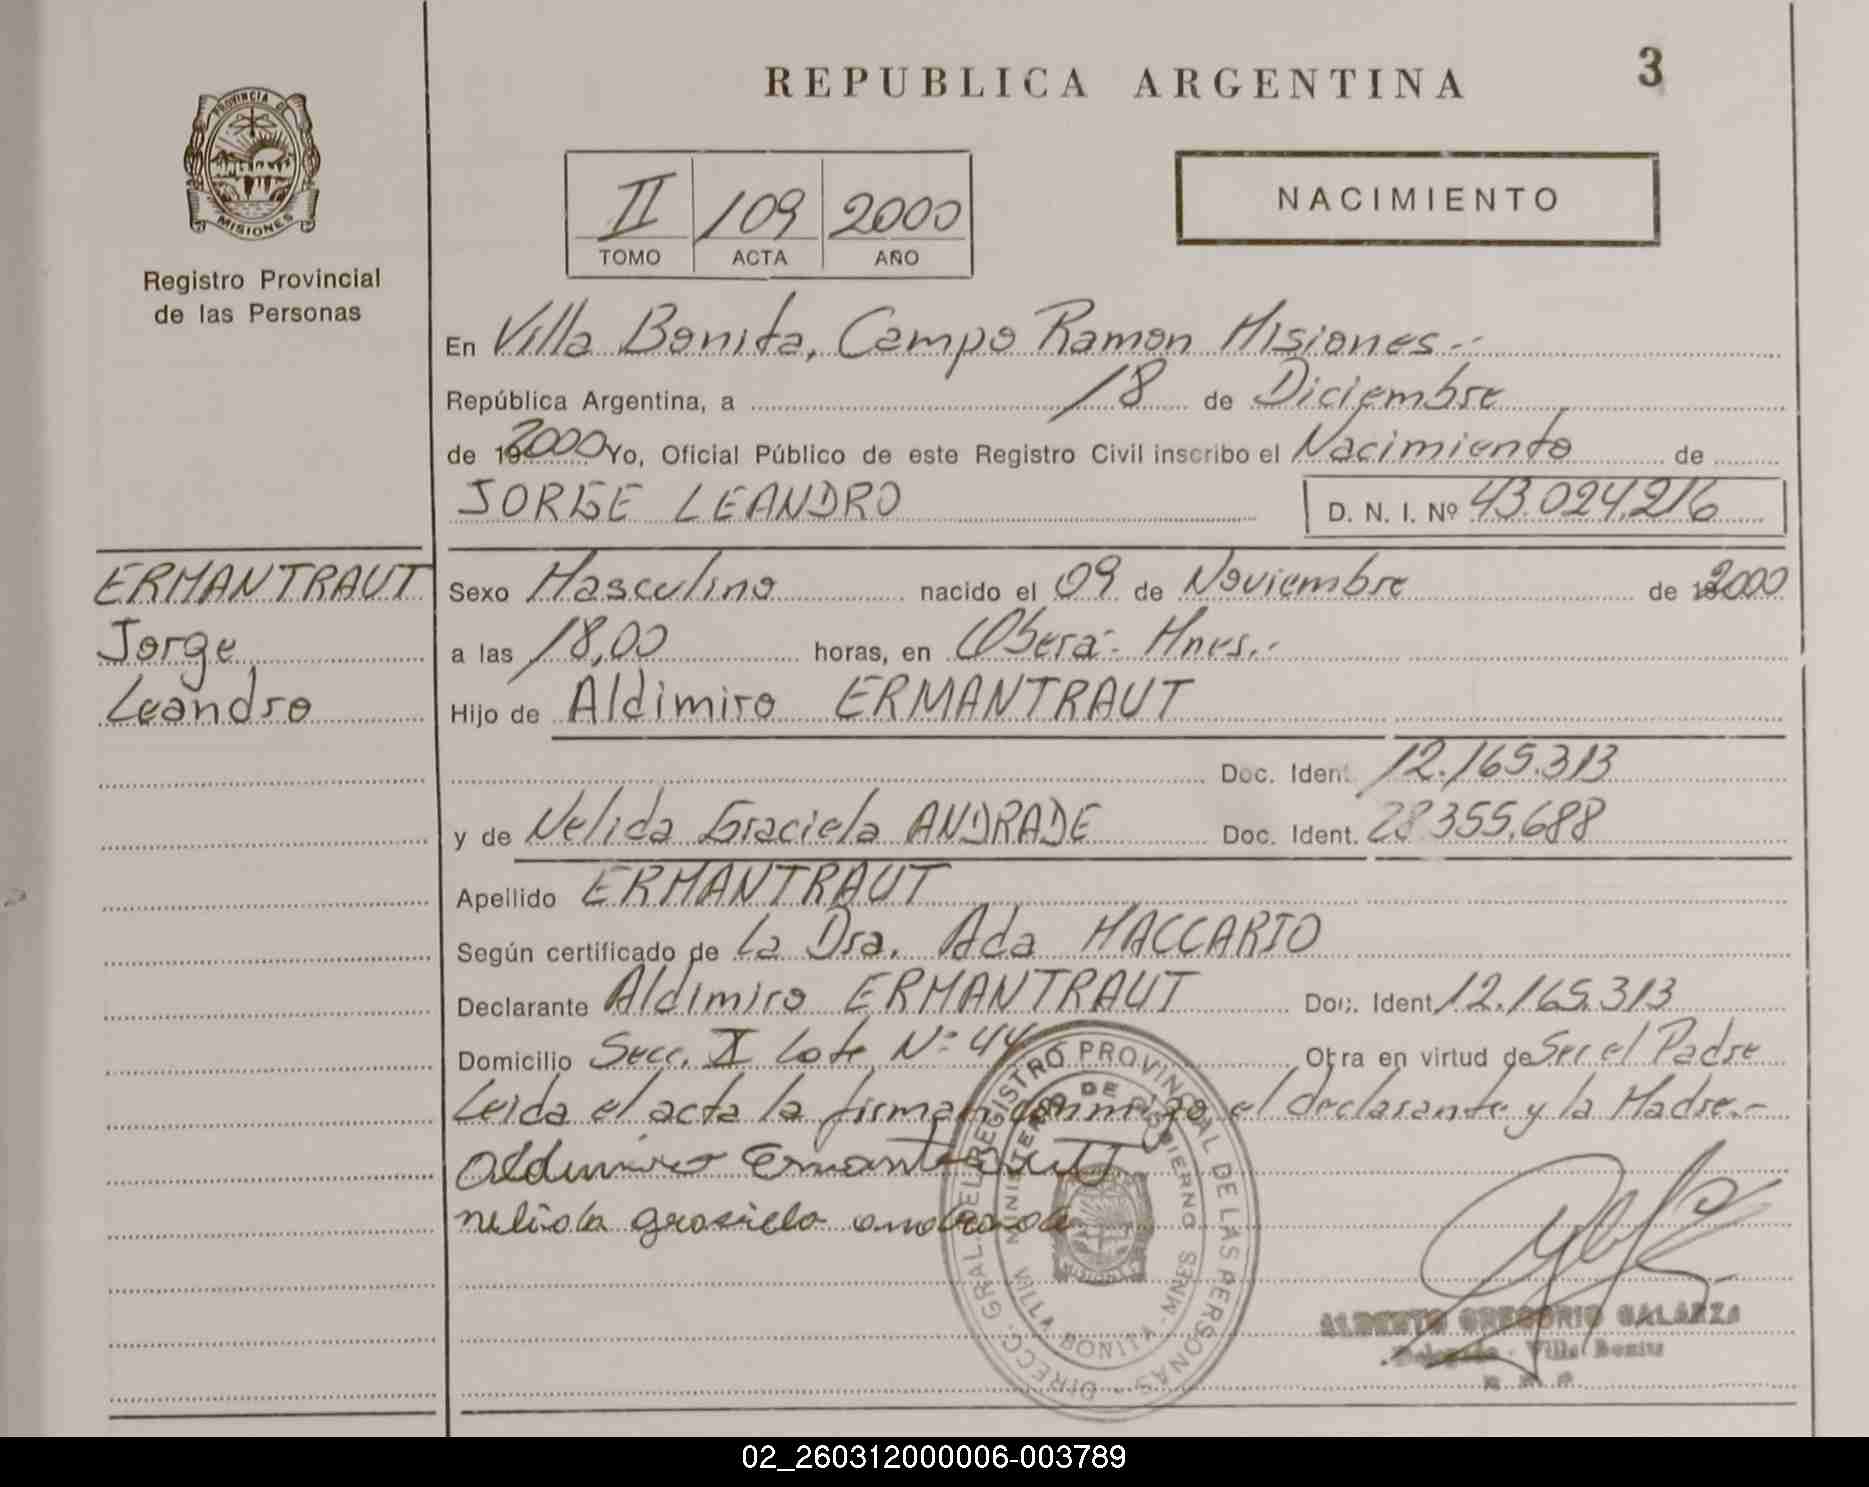 REPUBLICA ARGENTINA
3
PROVINCIA DE
MISIONES
Registro Provincial
de las Personas
II 109 2000
TOMO ACTA AÑO
NACIMIENTO
En Villa Bonita, Campo Ramon Misiones.-
República Argentina, a 18 de Diciembre
de 192000 Yo, Oficial Público de este Registro Civil inscribo el Nacimiento de
JORGE LEANDRO D. N. I. Nº 43.024.216
ERMANTRAUT
Jorge
Leandro
Sexo Masculino nacido el 09 de Noviembre de 192000
a las 18,00 horas, en Oberá- Mnes.-
Hijo de Aldimiro ERMANTRAUT
Doc. Ident. 12.165.313
y de Nelida Graciela ANDRADE Doc. Ident. 28.355.688
Apellido ERMANTRAUT
Según certificado de la Dra. Ada MACCARIO
Declarante Aldimiro ERMANTRAUT Doc. Ident 12.165.313
Domicilio Secc. X Lote Nº 44 Obra en virtud de Ser el Padre
Leida el acta la firman conmigo el declarante y la Madre.-
Aldimiro Ermantrautt
nelida grasiela andrade
DIRECC. GRAL. DEL REGISTRO PROVINCIAL DE LAS PERSONAS
MINISTERIO DE GOBIERNO
VILLA BONITA - MNES
ALBERTO GREGORIO GALARZA
Delegado - Villa Bonita
02_260312000006-003789